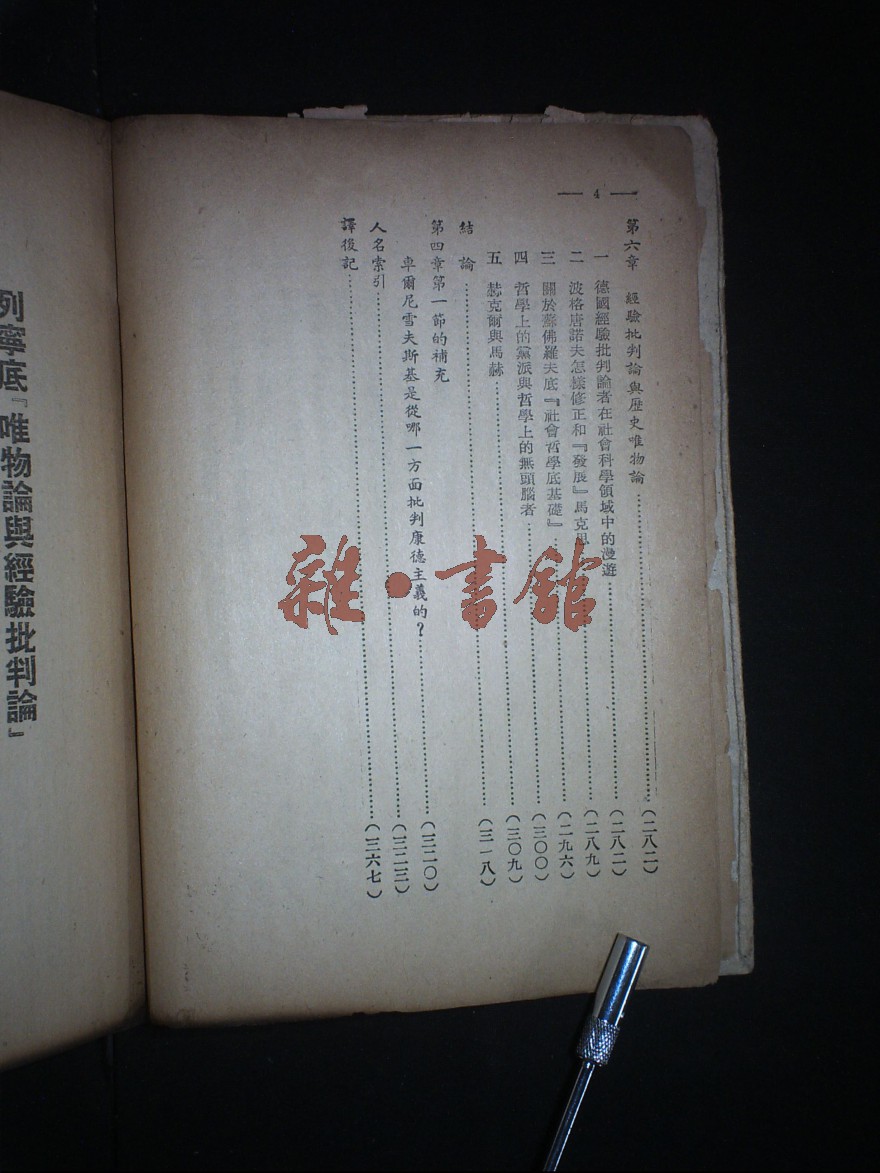 — 4 —
第六章 經驗批判論與歷史唯物論……(二八二)
一 德國經驗批判論者在社會科學領域中的漫遊……(二八二)
二 波格唐諾夫怎樣修正和『發展』馬克思……(二八九)
三 關於蘇佛羅夫底『社會哲學底基礎』……(二九六)
四 哲學上的黨派與哲學上的無頭腦者……(三〇〇)
五 赫克爾與馬赫……(三〇九)
結論……(三一八)
第四章第一節的補充
車爾尼雪夫斯基是從哪一方面批判康德主義的？……(三二〇)
人名索引……(三二三)
譯後記……(三六七)
列寧底『唯物論與經驗批判論』
雜·書館